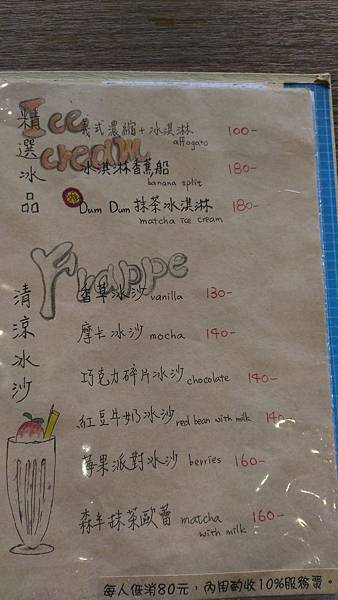 Ice cream
精選冰品
義式濃縮+冰淇淋 100-
affogato
冰淇淋香蕉船 180-
banana split
Dum Dum 抹茶冰淇淋 180-
matcha ice cream
Frappe
清涼冰沙
香草冰沙 vanilla 130-
摩卡冰沙 mocha 140-
巧克力碎片冰沙 chocolate 140-
紅豆牛奶冰沙 red bean with milk 140-
莓果派對冰沙 berries 160-
森半抹茶歐蕾 matcha with milk 160-
每人低消80元，內用酌收10%服務費。